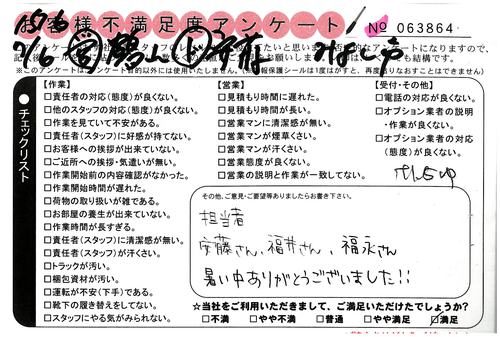 お客様不満足度アンケート
No 063864
7/6
※このアンケートは
チェックリスト
【作業】
□責任者の対応(態度)が良くない。
□他のスタッフの対応(態度)が良くない。
□作業を見ていて不安がある。
□責任者(スタッフ)に好感が持てない。
□お客様への挨拶が出来ていない。
□ご近所への挨拶・気遣いが無い。
□作業開始前の内容確認がなかった。
□作業開始時間が遅れた。
□荷物の取り扱いが雑である。
□お部屋の養生が出来ていない。
□作業時間が長すぎる。
□責任者(スタッフ)に清潔感が無い。
□責任者(スタッフ)が汗くさい。
□トラックが汚い。
□梱包資材が汚い。
□運転が不安(下手)である。
□靴下の履き替えをしてない。
□スタッフにやる気がみられない。
【営業】
□見積もり時間に遅れた。
□見積もり時間が長い。
□営業マンに清潔感が無い。
□営業マンが煙草くさい。
□営業マンが汗くさい。
□営業態度が良くない。
□営業の説明と作業が一致してない。
【受付・その他】
□電話の対応が良くない。
□オプション業者の説明
・作業が良くない。
□オプション業者の対応
(態度)が良くない。
その他、ご意見・ご要望等ありましたらお書き下さい。
担当者
安藤さん、福井さん、福永さん
暑い中ありがとうございました!!
☆当社をご利用いただきまして、ご満足いただけたでしょうか?
□不満 □やや不満 □普通 □やや満足 ☑満足